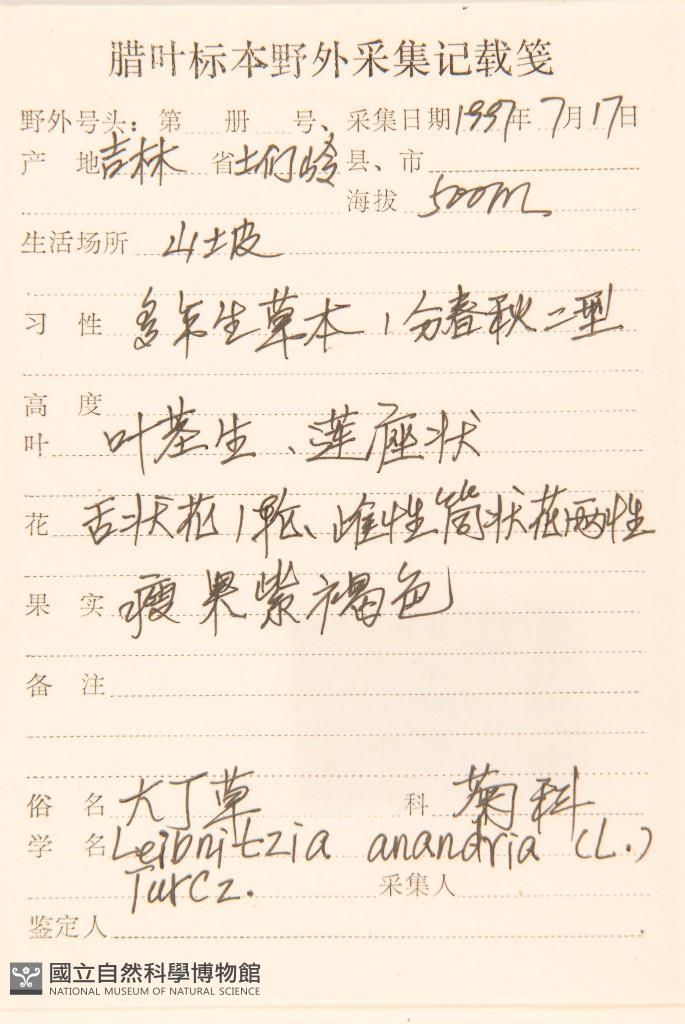 腊叶标本野外采集记载笺
野外号头：第 册 号、采集日期1997年7月17日
产 地吉林 省土们岭县、市
海拔 500m
生活场所 山土坡
习 性 多年生草本，分春秋二型
高 度
叶 叶基生、莲座状
花 舌状花1轮、雌性筒状花两性
果 实 瘦果紫褐色
备 注
俗 名 大丁草 科 菊科
学 名 Leibnitzia anandria (L.)
Turcz. 采集人
鉴定人
國立自然科學博物館
NATIONAL MUSEUM OF NATURAL SCIENCE